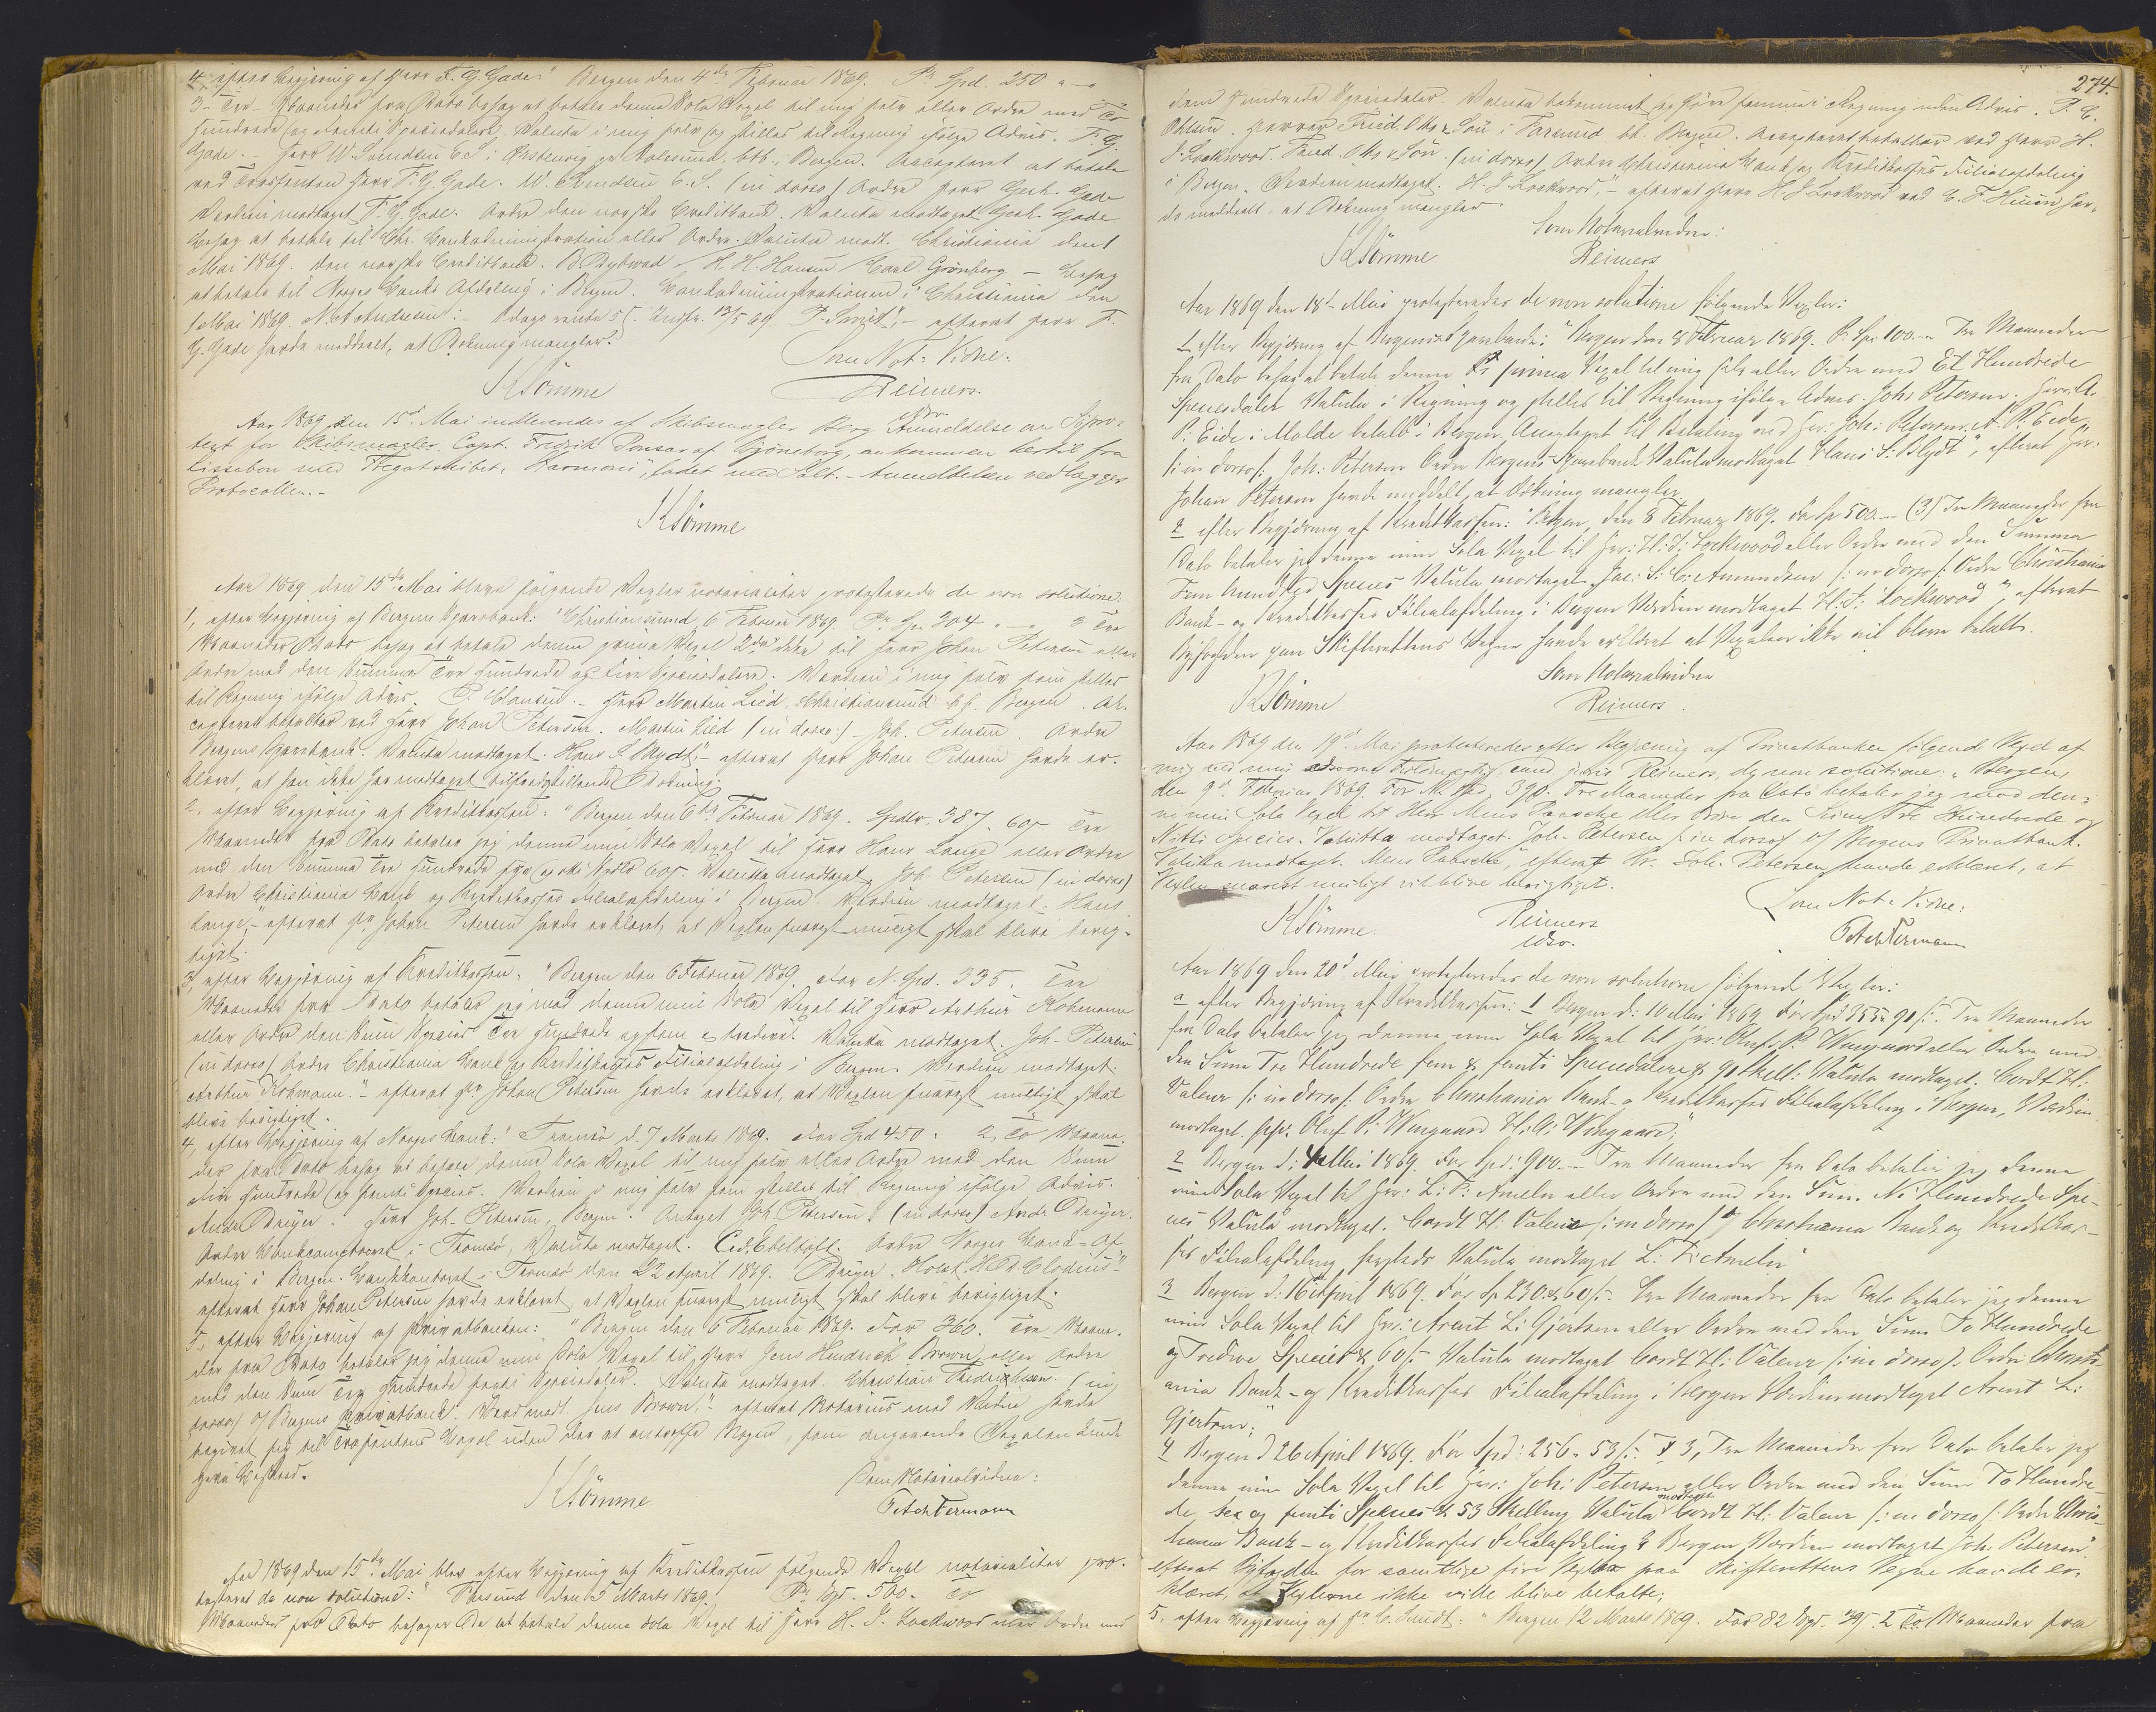 4 efter Begjæring af Herr F. G. Gade: "Bergen den 4de Februar 1869. Pr Spd. 250 " - "
3 - Tre - Maaneder fra Dato behag at betale denne Sola Vexel til mig selv eller Ordre med To
Hundrede og Femti Speciesdaler, Valuta i mig selv og stilles til Regning ifølge Advis. F. G.
Gade. - Herr W. Svendsen E. S. i Ørstenvig pr Aalesund. btb. i Bergen. Accepteret at betale
ved Trassenten Herr F. G. Gade. W. Svendsen E. S. (in dorso) Ordre Herr Gerh. Gade
Værdien modtaget F. G. Gade. Ordre den norske Creditbank. Valuta modtaget Gerh. Gade
Behag at betale til Chr. Bankadministration eller Ordre. Valuta modt. Christiania den 1
Mai 1869. den norske Creditbank. H. H. Hansen / Carl Grönberg - Behag
at betale til Norges Banks Afdeling i Bergen. Bankadministrationen i Christiania den
1 Mai 1869. 13/5 69 - efterat Herr F.
G. Gade havde meddeelt, at Dækning mangler.
Som Not: Vidne.
KSömme Reimers.
Aar 1869 den 15d Mai indleveredes af Skibsmægler Berg Anmeldelse om Søpro-
test for Capt. Fredrik Ponsar af Björneborg, ankommen hertil fra
Lissabon med Fregatskibet "Harmoni", ladet med Salt. - Anmeldelsen vedlægges
Protocollen. -
KSömme
Aar 1869 den 15de Mai bleve følgende Vexler notarialiter protesterede de non solutione.
1, efter Begjæring af Bergens Sparebank: "Christiansund 6 Februar 1869. Pr Sp. 204 " - " 3 Tre
Maaneder Dato behag at betale denne prima Vexel 2da ikke til Herr Johan Petersen eller
Ordre med den Summa To Hundrede og Fire Speciesdaler. Værdien i mig selv som stilles
til Regning ifølge Advis. P. Clausen. - Herr Martin Lied, Christiansund bt. Bergen. Ac-
cepteret betalbar ved Herr Johan Petersen. Martin Lied (in dorso:) - Joh. Petersen. Ordre
Bergens Sparebank. Valuta modtaget. Hans S. Blydt," - efterat Herr Johan Petersen havde er-
klæret, at han ikke har modtaget tilfredsstillende Dækning.
2. efter Begjæring af Kreditkassen: "Bergen den 6te Februar 1869. Spdlr. 387. 60ß Tre
Maaneder fra Dato betaler jeg denne min Sola Vexel til Herr Hans Lange eller Ordre
med den Summa Tre Hundrede syv og otti Spdlr 60ß. Valutta modtaget. Joh. Petersen (in dorso)
Ordre Christiania Bank og Kreditkasses Filialafdeling i Bergen. Værdien modtaget. Hans
Lange," - efterat Hr Johan Petersen havde erklæret, at Vexlen snarest muligt skal blive berig-
tiget.
3, efter Begjæring af Kreditkassen: "Bergen den 6 Februar 1869. For N. Spd. 335. Tre
Maaneder fra Dato betaler jeg mod denne min Sola Vexel til Herr Arthur Kohmann
eller Ordre den Sum Species Tre Hundrede og fem & tredive. Valuta modtaget. Joh. Petersen
(in dorso) Ordre Christiania Bank og Kreditkasses Filialafdeling i Bergen. Værdien modtaget.
Arthur Kohmann." - efterat Hr Johan Petersen havde erklæret, at Vexlen snarest muligt skal
blive berigtiget.
4, efter Begjæring af Norges Bank: "Tromsø d. 7 Marts 1869. For Spd 450. 2 To Maane-
der fra Dato behag at betale denne Sola Vexel til mig selv eller Ordre med den Sum
Fire Hundrede og femti Species. Værdien i mig selv som stilles til Regning ifølge Advis.
Andr Dreyer. Herr Joh. Petersen, Bergen. Antaget Joh. Petersen. (in dorso) Andr Dreyer.
Ordre Bankcomptoiret i Tromsø, Valuta modtaget. Ced. Ebeltoft. Ordre Norges Bank-Af-
deling i Bergen. Bankkontoret i Tromsø den 22 April 1869. Dreyer.
efterat Herr Johan Petersen havde erklæret at Vexlen snarest muligt skal blive berigtiget.
5, efter Begjæring af Privatbanken: "Bergen den 6 Februar 1869. For 360. Tre Maane-
der fra Dato betaler jeg denne min Sola Vexel til Herr Jens Hindrich Brown eller Ordre
med den Sum Tre Hundrede sexti Speciesdaler. Valuta modtaget. Christian Fredriksen (in
dorso) O/ Bergens Privatbank. Værd modt. Jens Brown," - efterat Notarius med Vidne havde
begivet sig til Trassentens Bopæl uden der at antræffe Nogen, som angaaende Vexelen kunde
give Besked.
Som Notarialvidne:
KSömme
Aar 1869 den 15de Mai blev efter Begjæring af Kreditkassen følgende Vexel notarialiter pro-
testeret de non solutione: "Farsund den 5 Marts 1869. Pr Spd. 500. To
Maaneder fra Dato behager De at betale denne Sola Vexel til Herr H. J. Lockwood eller Ordre med
274.
Fem Hundrede Speciesdaler. Valuta bekommet og føre samme i Regning uden Advis. P. C.
Herrer Fried. Otto & Sön i Farsund bt. Bergen. Accepteret betalbar ved Herr H.
J. Lockwood. Fried. Otto & Sön. (in dorso) Ordre Christiania Bank og Kreditkasses Filialafdeling
i Bergen. Værdien modtaget. H. J. Lockwood," - efterat Herr H. J. Lockwood ved hav-
de meddeelt, at Dækning mangler.
Som Notarialvidne:
KSömme Reimers
Aar 1869 den 18d Mai protesteredes de non solutione følgende Vexler:
1 efter Begjæring af Bergens Sparebank: "Bergen den 8 Februar 1869. Pr. Spd 100. - Tre Maaneder
fra Dato behag at betale denne prima Vexel til mig selv eller Ordre med Et Hundrede
Speciesdaler Valuta i Regning og stilles til Regning ifølge Advis. Joh: Petersen. Herr A.
P. Eide i Molde betalb i Bergen. Antaget til Betaling ved Hr: Joh: Petersen. A. P. Eide
/: in dorso /: Joh: Petersen Ordre Bergens Sparebank Valuta modtaget Hans S. Blydt", efterat Hr:
Johan Petersen havde meddelt, at Dækning mangler.
2 efter Begjæring af Kreditkassen: "Bergen, den 8 Februar 1869. For Sp 500. - (3) Tre Maaneder fra
Dato betaler jeg denne min Sola Vexel til Hr: H: J: Lockwood eller Ordre med den Summa
Fem hundrede Species Valuta modtaget. Jac: S: C: Amundsen /: in dorso /: Ordre Christiania
Bank- og Kreditkasses Filialafdeling i Bergen Værdien modtaget H: J: Lockwood", efterat
Byfogden paa Skifterettens Vegne havde erklæret at Vexelen ikke vil blive betalt.
Som Notarialvidne
KSömme Reimers.
Aar 1869 den 19d Mai protesteredes efter Begjæring af Privatbanken følgende Vexel af
mig ved min edsvorne Fuldmægtig cand juris Reimers, de non solutione: "Bergen,
den 9d Februar 1869. For N. Spd. 390. Tre Maaneder fra Dato betaler jeg mod den-
ne min Sola Vexel til Herr Mens Paasche eller Ordre den Sum Tre Hundrede og
Nitti Species. Valutta modtaget. Joh. Petersen /: in dorso /: O/ Bergens Privatbank.
Valutta modtaget. Mens Paasche", efterat Hr. Joh: Petersen havde erklæret, at
Vexlen snarest muligt vil blive berigtiget.
Som Not. Vidne:
KSömme. Reimers
Aar 1869 den 20d Mai protesteredes de non solutione følgende Vexler:
a efter Begjæring af Kreditkassen: 1 Bergen d: 10 Mai 1869 For Spd 355 " 90 ß. Tre Maaneder
fra Dato betaler jeg denne min Sola Vexel til Hr: Oluf P. Wingaard eller Ordre med
den Sum Tre Hundrede fem & femti Speciedalere & 90 Skill: Valuta modtaget. Cordt H:
Valeur /: in dorso /: Ordre Christiania Bank- og Kreditkasses Filialafdeling i Bergen, Værdien
modtaget. pp. Oluf P: Wingaard H: A: Wingaard;
2 Bergen d: Mai 1869. For Spd: 900. - Tre Maaneder fra Dato betaler jeg denne
min Sola Vexel til Hr: L: P: Ameln eller Ordre med den Sum. Ni Hundrede Spe-
cies Valuta modtaget. Cordt H: Valeur /: in dorso /: O/ Christiania Bank og Kreditkas-
ses Filialafdeling Valuta modtaget L: P: Ameln
3 Bergen d: 16 April 1869. For Sp 230 & 60 ß. Tre Maaneder fra Dato betaler jeg denne
min Sola Vexel til Hr: Arent L: Gjertsen eller Ordre med den Sum To Hundrede
og Tredive Species & 60 ß Valuta modtaget Cordt H: Valeur /: in dorso /: Ordre Christi-
ania Bank- og Kreditkasses Filialafdeling i Bergen Værdien modtaget Arent L:
Gjertsen;
4 Bergen d 26 April 1869. For Spd: 256 " 53 ß. 3, Tre Maaneder fra Dato betaler jeg
denne min Sola Vexel til Hr: Joh: Petersen eller Ordre med den Sum To Hundre-
de, sex og femti Species & 53 Skilling Valuta modtaget Cordt H: Valeur /: in dorso /: Ordre Chris-
tiania Bank- og Kreditkasses Filialafdeling i Bergen Værdien modtaget Joh: Petersen"
efterat Byfogden for samtlige fire Vexler paa Skifterettens Vegne havde er-
klæret, at Vexlerne ikke ville blive betalte;
5. efter Begjæring af Hr C. Sundt: "Bergen 12 Marts 1869. For 82 Spd. 2 To Maaneder fra